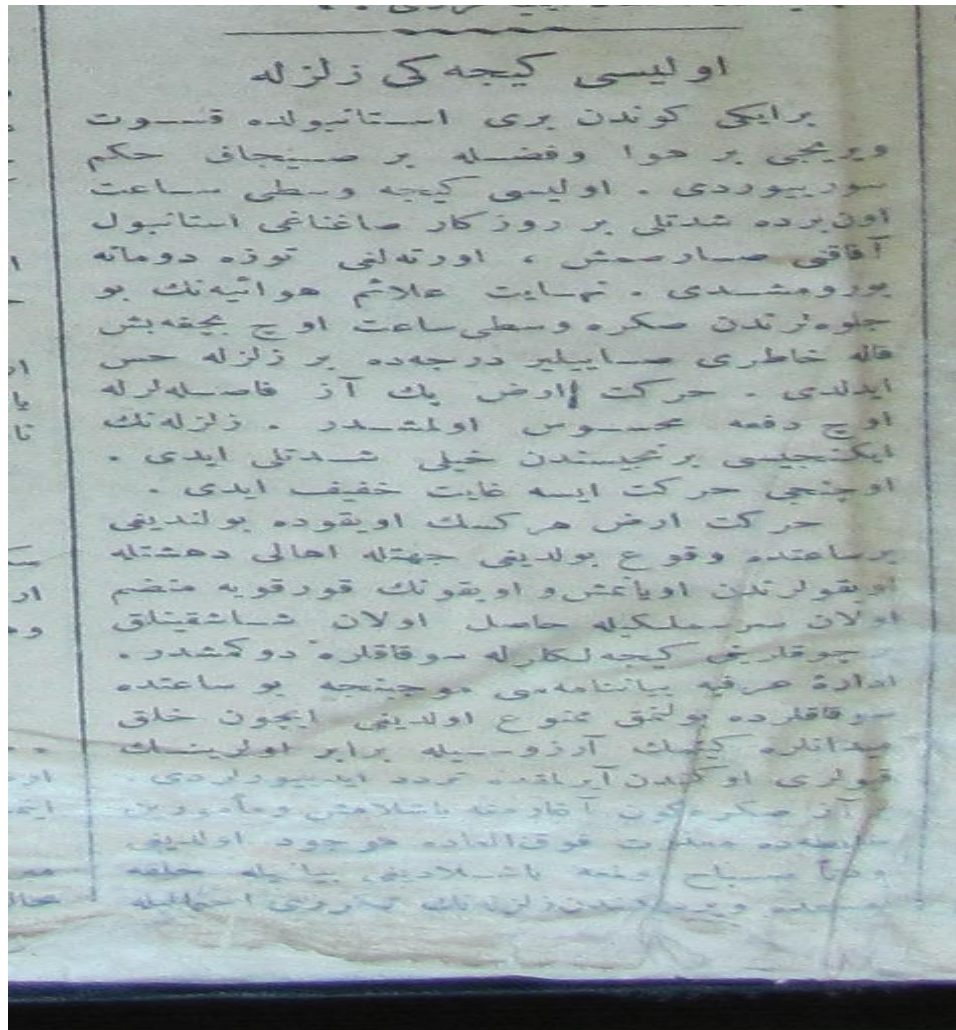 اوليسى كيجه كى زلزله
برايكى كوندن برى استانبولده قسوت
ويريجى بر هوا وفضله بر صيجاق حكم
سورييوردى . اوليسى كيجه وسطى ساعت
اون برده شدتلى بر روزكار صاغناغى استانبول
آفاقنى صارصمش ، اورته لغى توزه دومانه
بورومشدى . نهايت علائم هوائيه نك بو
جلوه لرندن صكره وسطى ساعت اوچ بچغه بش
قاله خاطرى صاييلير درجه ده بر زلزله حس
ايدلدى . حركت ارض پك آز فاصله لرله
اوچ دفعه محسوس اولمشدر . زلزله نك
ايكنجيسى برنجيسندن خيلى شدتلى ايدى .
اوچنجى حركت ايسه غايت خفيف ايدى .
حركت ارض هركسك اويقوده بولنديغى
برساعتده وقوع بولديغى جهتله اهالى دهشتله
اويقولرندن اويانمش و اويقونك قورقويه منضم
اولان سرسملكيله حاصل اولان شاشقينلق
چوقلرينى كيجه لكلرله سوقاقلره دوكمشدر .
ادارۀ عرفيه بياننامه سى موجبنجه بو ساعتده
سوقاقلرده بولنمق ممنوع اولديغى ايچون خلق
ميدانلره كيتمك آرزوسيله برابر اولرينك
قپولرى اوكندن آيرلمقده تردد ايدييورلردى .
آز صكره كون آغارمغه باشلامش
فوق العاده موجود اولديغى
صباح باشلاديغى بيانيله خلقه
زلزله نك احتماليله